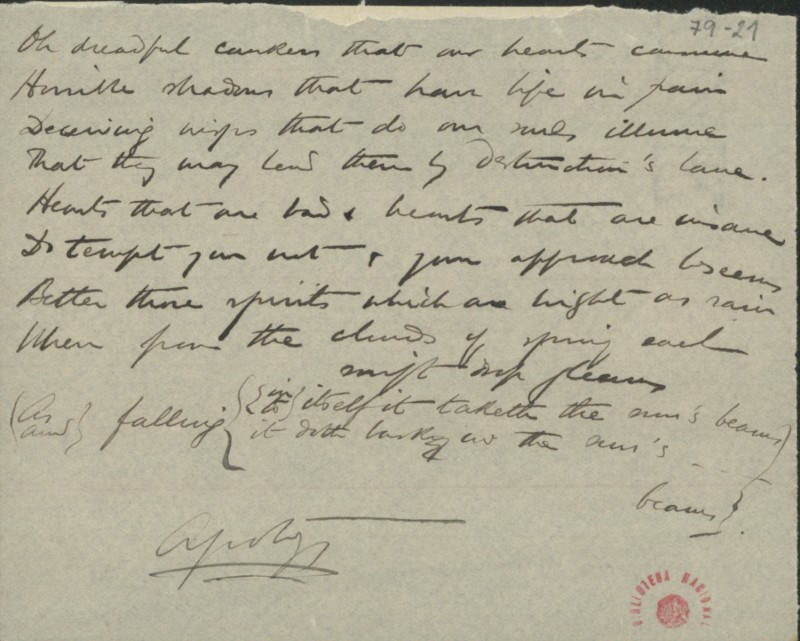 79-21
Oh dreadful cankers that our hearts consume
Horrible shadows that have life in pain
Deceiving wisps that do our souls illume
That they may lead them by Destruction's lane.
Hearts that are bad & hearts that are insane
Do tempt you not & your approach beseems
Better those spirits which are bright as rain
When from the clouds of spring each
swift drop gleams
(As and) falling { {in to} itself it taketh the sun's beams
it doth bask in the sun's
beams}.
BIBLIOTECA NACIONAL